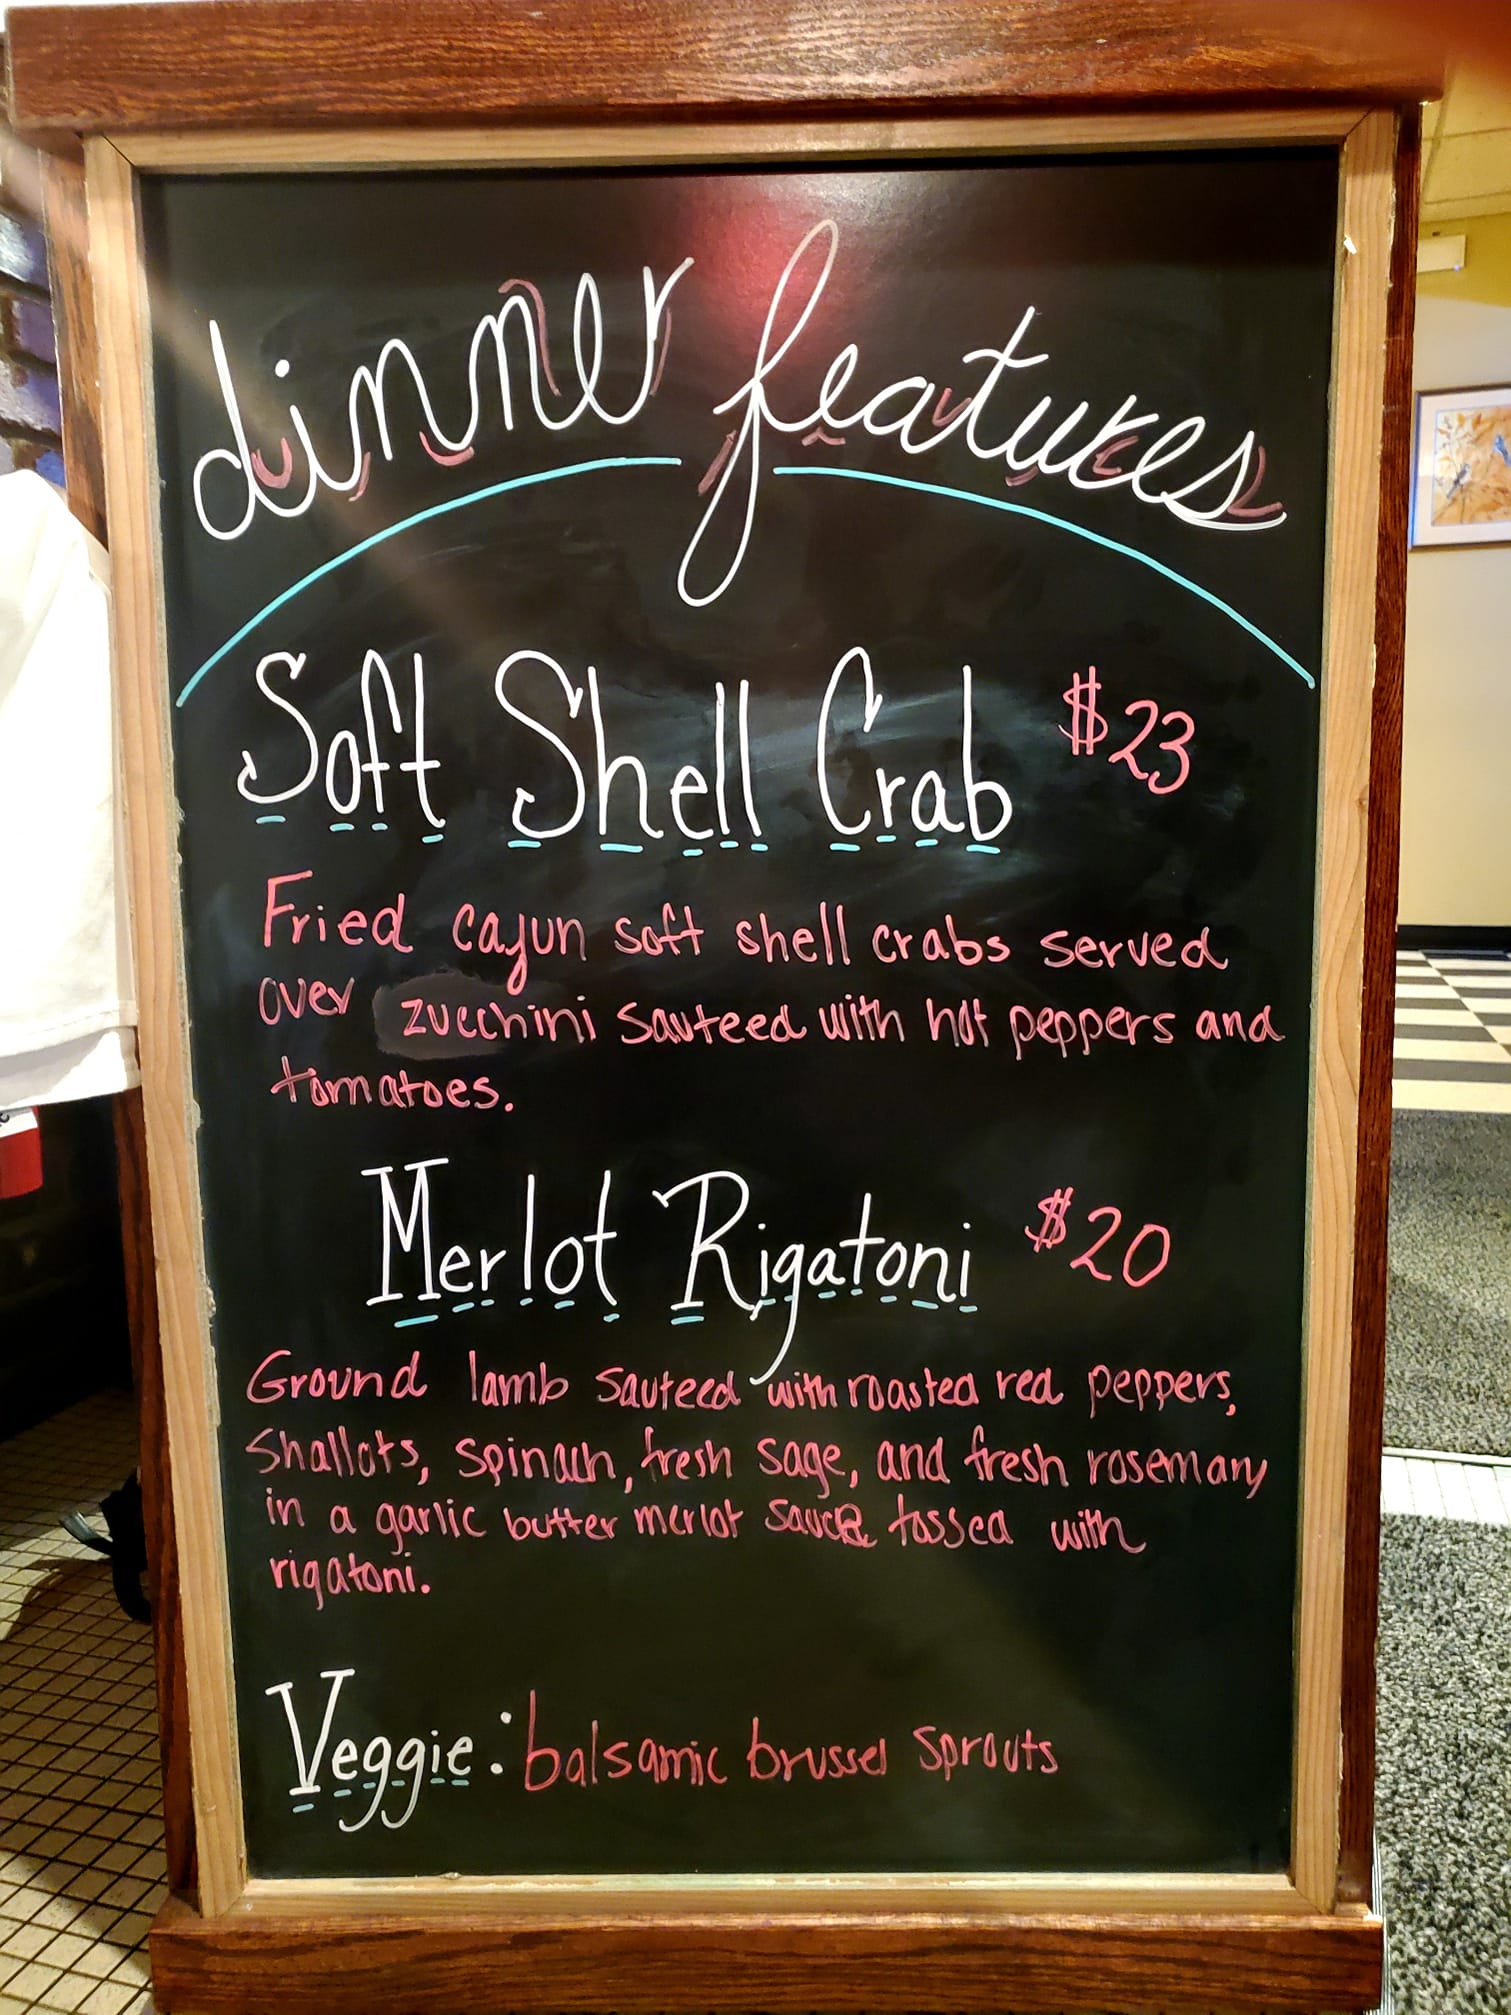 dinner features
Soft Shell Crab $23
Fried cajun soft shell crabs served
over zucchini sauteed with hot peppers and
tomatoes.
Merlot Rigatoni $20
Ground lamb sauteed with roasted red peppers,
Shallots, spinach, fresh sage, and fresh rosemary
in a garlic butter merlot sauce tossed with
rigatoni.
Veggie: balsamic brussel sprouts